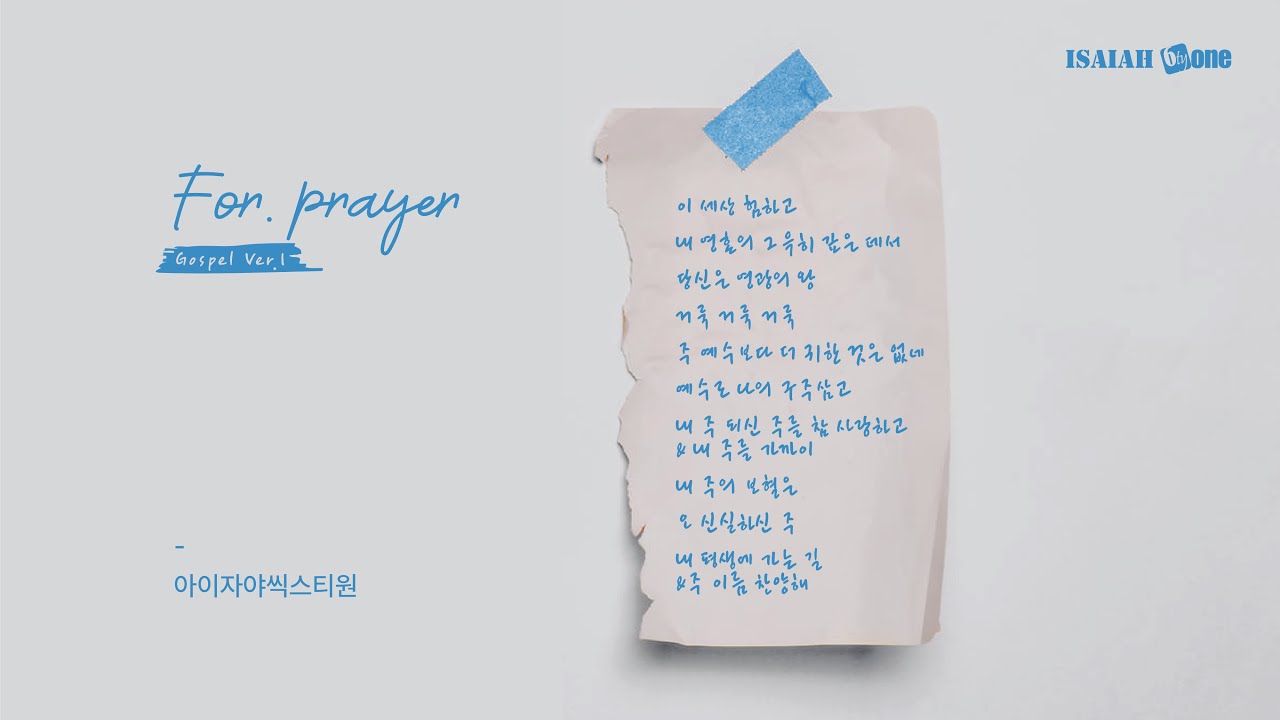 ISAIAH 6tyone
For. prayer
Gospel Ver.1
이 세상 험하고
내 영혼의 그윽히 깊은 데서
당신은 영광의 왕
거룩 거룩 거룩
주 예수보다 더 귀한 것은 없네
예수로 나의 구주삼고
내 주 되신 주를 참 사랑하고
& 내 주를 가까이
내 주의 보혈은
오 신실하신 주
내 평생에 가는 길
&주 이름 찬양해
-
아이자야씩스티원